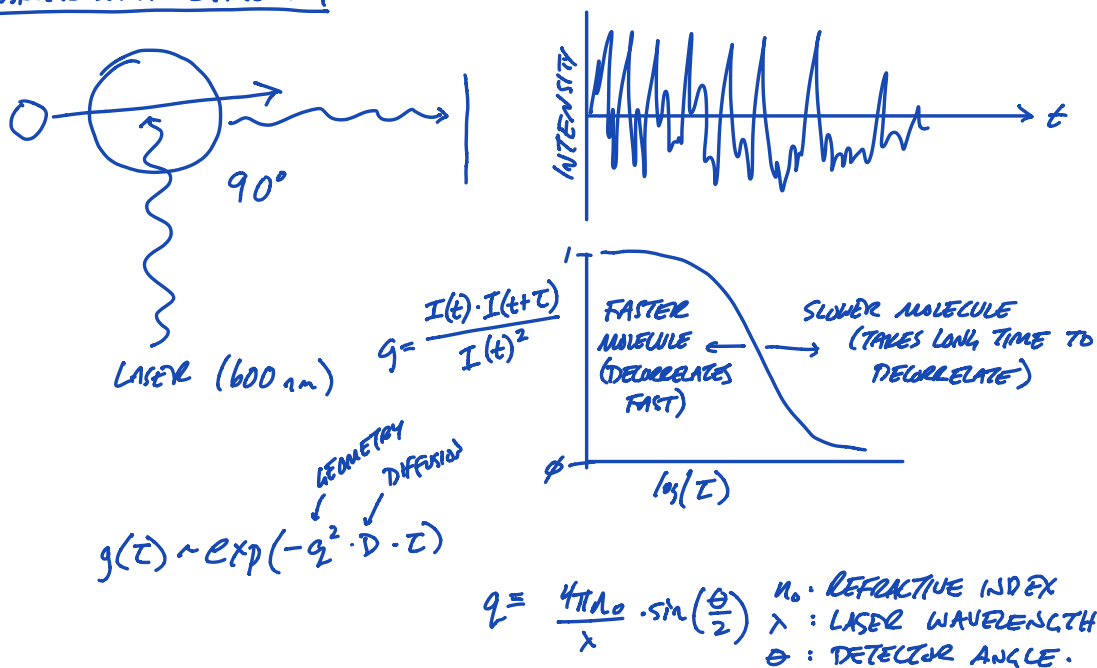 90°
LASER (600 nm)
INTENSITY
t
g = I(t)·I(t+τ) / I(t)²
1
FASTER
MOLECULE
(DECORRELATES
FAST)
SLOWER MOLECULE
(TAKES LONG TIME TO
DECORRELATE)
ø
log(τ)
GEOMETRY
DIFFUSION
g(τ) ~ exp(-q²·D·τ)
q ≡ 4πn₀ / λ · sin(θ/2)
n₀: REFRACTIVE INDEX
λ : LASER WAVELENGTH
θ : DETECTOR ANGLE.